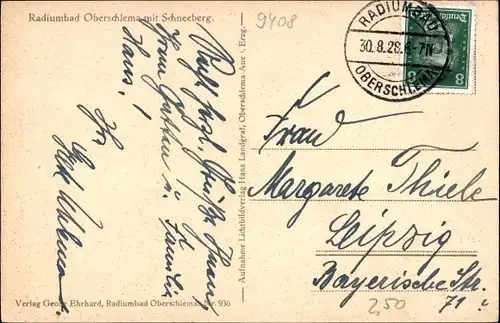 Radiumbad Oberschlema mit Schneeberg.
9408
Recht herzl. Grüße Ihnen,
Ihrem Gatten u. Familie
Hans!
Ihr
RADIUMBAD
30.8.28.6-7N
OBERSCHLEMA
8 8
Frau
Margarete Thiele
Leipzig
Bayerische Str.
71
2,50
Aufnahme Lichtbildverlag Hans Landgraf, Oberschlema-Aue i. Erzg.
Verlag Georg Ehrhard, Radiumbad Oberschlema. Nr. 936